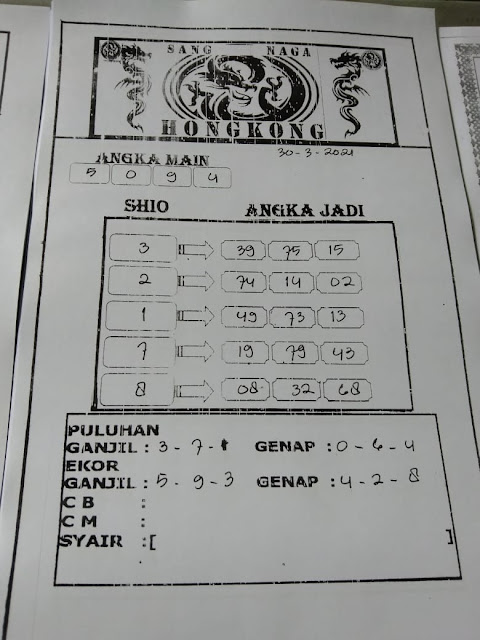 SANG NAGA
HONGKONG
30-3-2021
ANGKA MAIN
5 0 9 4
SHIO ANGKA JADI
3 39 75 15
2 74 14 02
1 49 73 13
7 19 79 43
8 08 32 68
PULUHAN
GANJIL : 3 - 7 - 1 GENAP : 0 - 6 - 4
EKOR
GANJIL : 5 - 9 - 3 GENAP : 4 - 2 - 8
C B :
C M :
SYAIR :[ ]